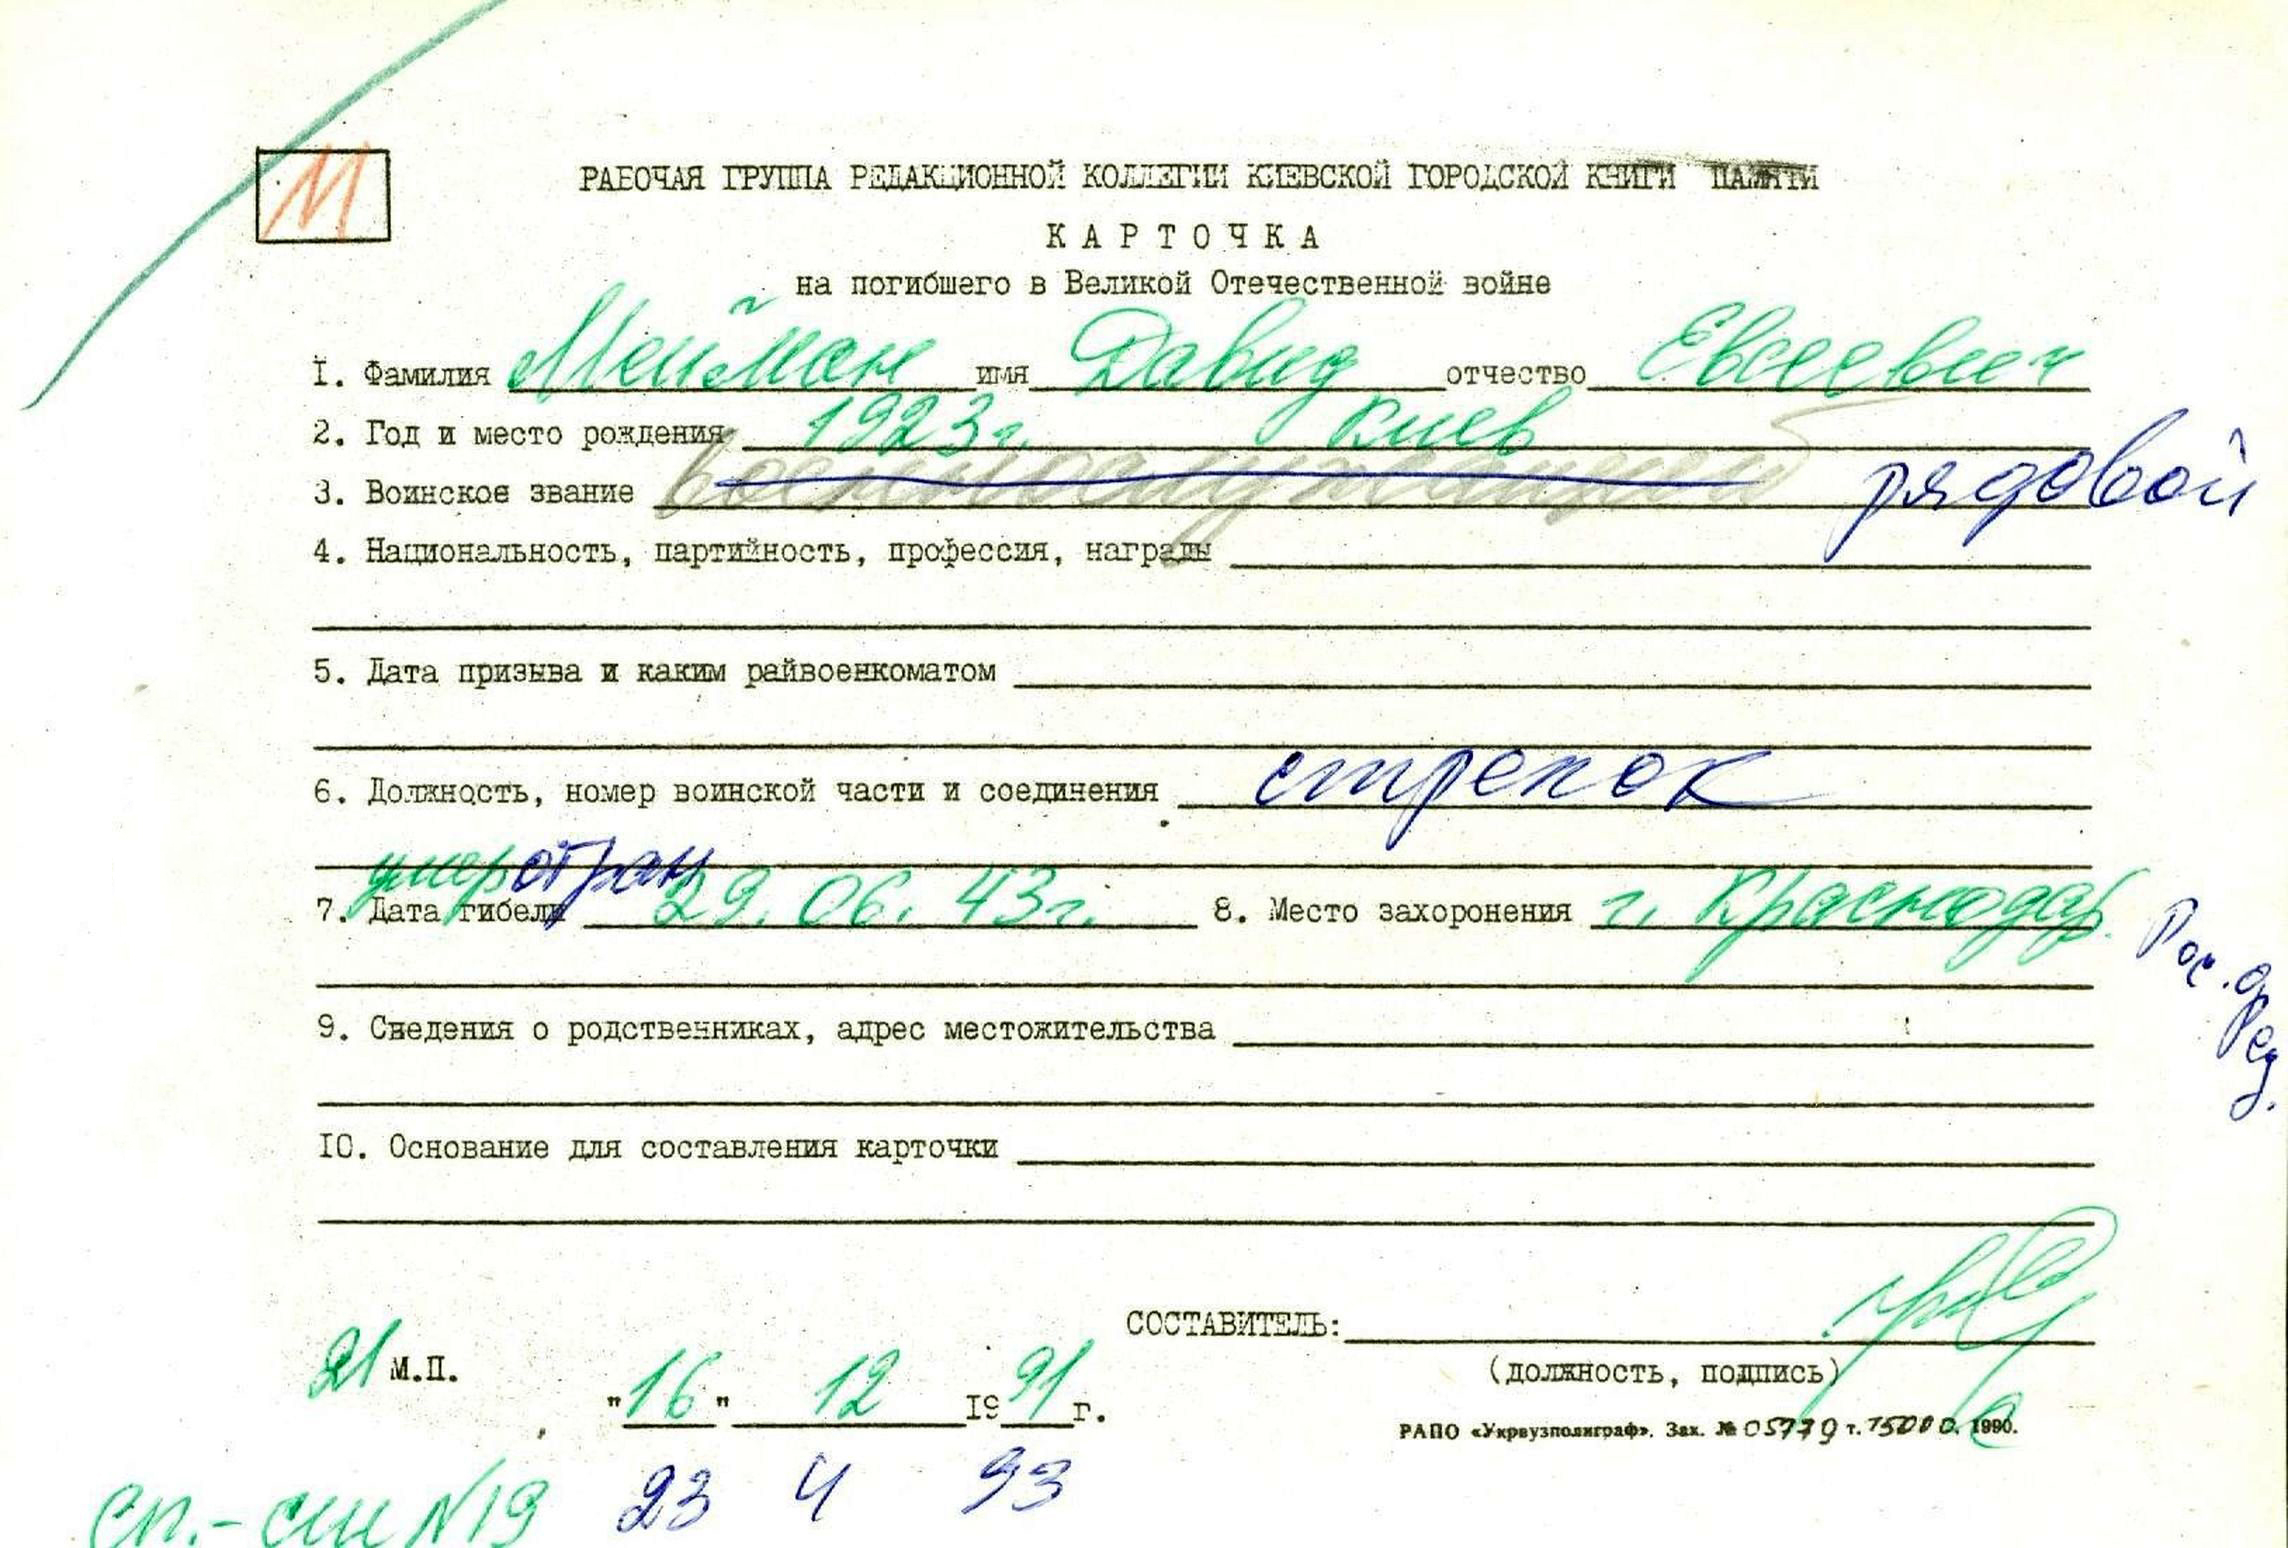 М
РАБОЧАЯ ГРУППА РЕДАКЦИОННОЙ КОЛЛЕГИИ КИЕВСКОЙ ГОРОДСКОЙ КНИГИ ПАМЯТИ
КАРТОЧКА
на погибшего в Великой Отечественной войне
I. Фамилия Мейман имя Давид отчество Евсеевич
2. Год и место рождения 1923г. Киев
3. Воинское звание военнослужащий рядовой
4. Национальность, партийность, профессия, награды
5. Дата призыва и каким райвоенкоматом
6. Должность, номер воинской части и соединения стрелок
умер от ран
7. Дата гибели 29.06.43г. 8. Место захоронения г. Краснодар. Рос. Фед.
9. Сведения о родственниках, адрес местожительства
IO. Основание для составления карточки
СОСТАВИТЕЛЬ:
(должность, подпись)
21 М.П.
"16" 12 I991г.
РАПО «Укрвузполиграф». Зак. № 05779 т. 15000. 1990.
23 4 93
сп.- N19